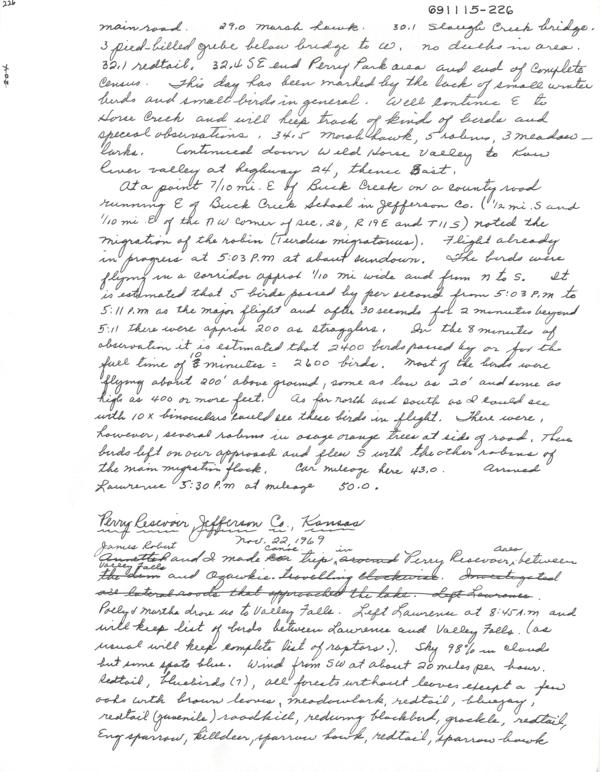 226
691115-226
404
main road. 29.0 marsh hawk. 30.1 Slough Creek bridge.
3 pied-billed grebe below bridge to W. no ducks in area.
32.1 redtail, 32.4 SE end Perry Park area and end of Complete
Census. This day has been marked by the lack of small winter
birds and small birds in general. Will continue E to
Horse Creek and will keep track of kind of birds and
special observations. 34.5 Marsh hawk, 5 robins, 3 meadow-
larks. Continued down Wild Horse Valley to Kaw
River valley at highway 24, thence East.
At a point 7/10 mi. E of Buck Creek on a county road
running E of Buck Creek School in Jefferson Co. (1/2 mi. S and
1/10 mi E of the NW corner of sec. 26, R 19 E and T 11 S) noted the
migration of the robin (Turdus migratorius). Flight already
in progress at 5:03 P.M at about sundown. The birds were
flying in a corridor approx 1/10 mi wide and from N to S. It
is estimated that 5 birds passed by per second from 5:03 P.m to
5:11 P.m as the major flight and after 30 seconds for 2 minutes beyond
5:11 there were approx 200 as stragglers. In the 8 minutes of
observation it is estimated that 2400 birds passed by or for the
full time of 10 minutes = 2600 birds. Most of the birds were
flying about 200' above ground, some as low as 20' and some as
high as 400 or more feet. As far north and south as I could see
with 10 x binoculars could see these birds in flight. There were,
however, several robins in osage orange trees at side of road. These
birds left on our approach and flew S with the other robins of
the main migration flock. Car mileage here 43.0. Arrived
Lawrence 5:30 P.m at mileage 50.0.
Perry Resevoir, Jefferson Co., Kansas
Nov. 22, 1969
James Robert canoe in area
and I made trip, around Perry Resevoir, between
Valley Falls
the dam and Ozawkie. travelling clockwise. Investigated
all lateral roads that approached the lake. Left Lawrence.
Polly & Martha drove us to Valley Falls. Left Lawrence at 8:45 A.m. and
will keep list of birds between Lawrence and Valley Falls. (as
usual will keep complete list of raptors.). Sky 98% in clouds
but some spots blue. Wind from SW at about 20 miles per hour.
Redtail, bluebirds (7), all forests without leaves except a few
oaks with brown leaves, meadowlark, redtail, bluejay,
redtail (juvenile) roadkill, redwing blackbird, grackle, redtail,
Eng sparrow, killdeer, sparrow hawk, redtail, sparrow hawk